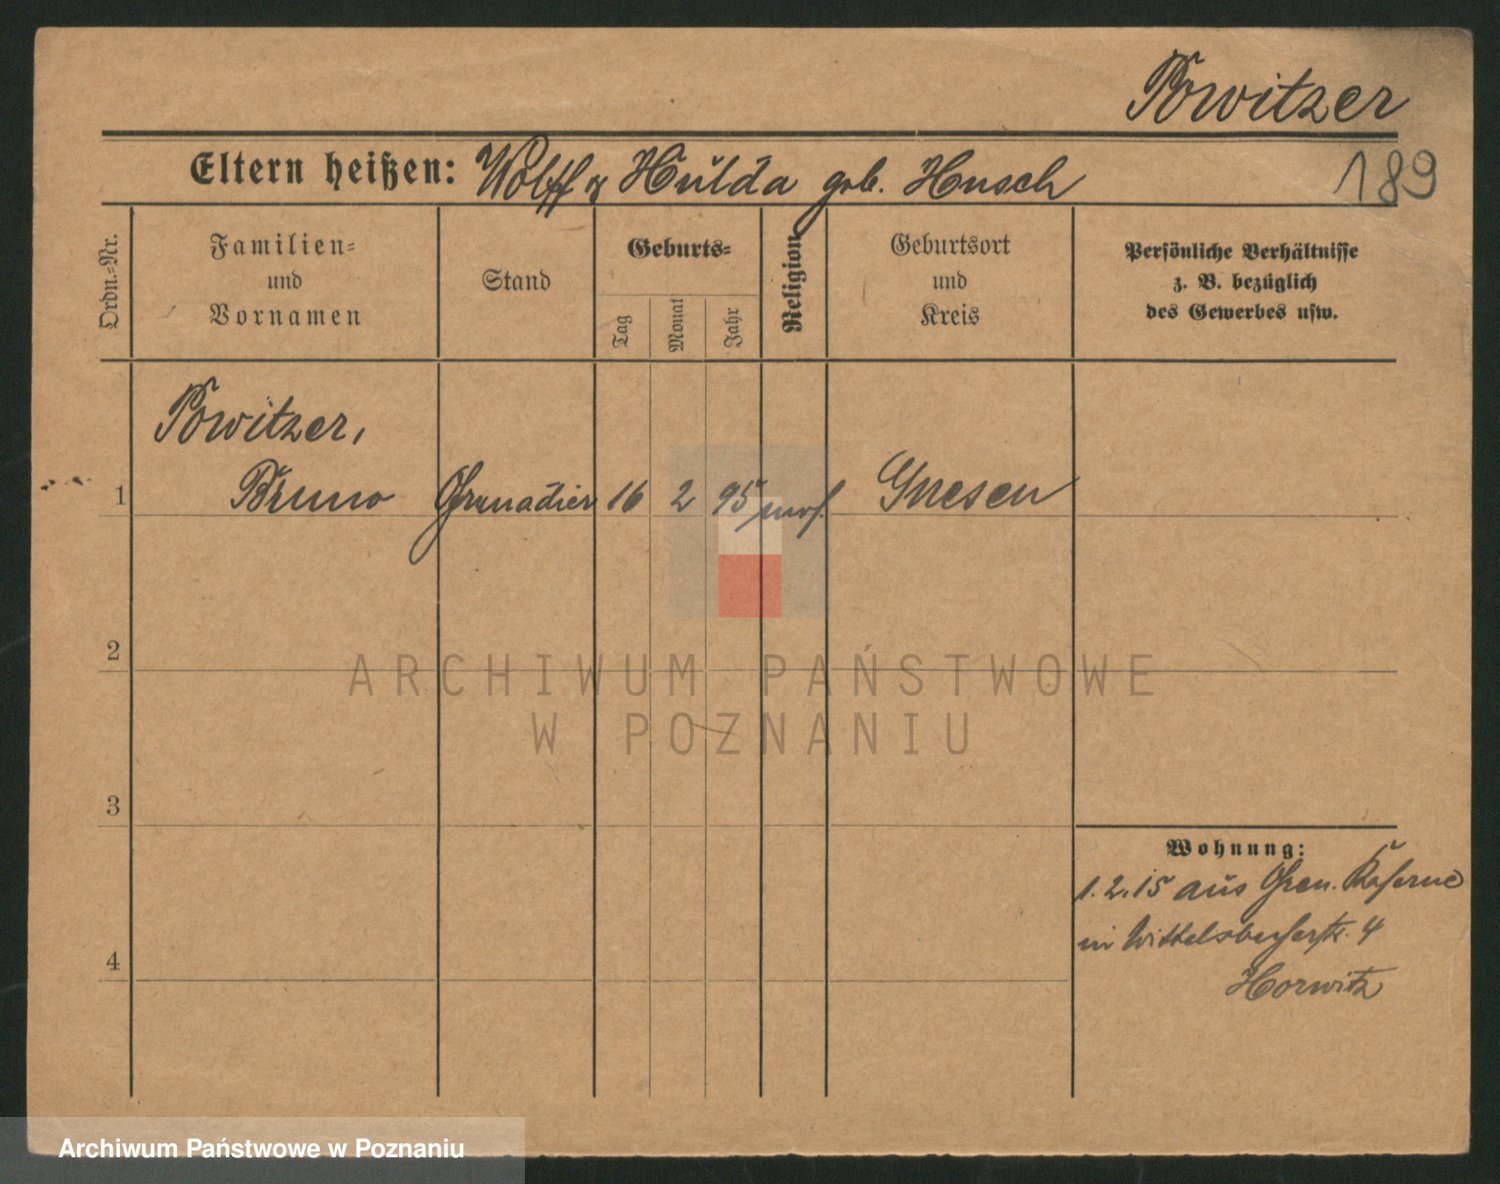 Powitzer
Eltern heißen: Wolff & Hulda geb. Husch
189
Ordn.-Nr.
Familien- und Vornamen
Stand
Geburts-
Tag
Monat
Jahr
Religion
Geburtsort und Kreis
Persönliche Verhältnisse
z. B. bezüglich
des Gewerbes usw.
Powitzer,
1 Bruno Grenadier 16 2 95 mos. Gnesen
2
ARCHIWUM PAŃSTWOWE
W POZNANIU
3
Wohnung:
1.2.15 aus Gren. Kaserne
in Wittelsbacherstr. 4
Horwitz
4
Archiwum Państwowe w Poznaniu